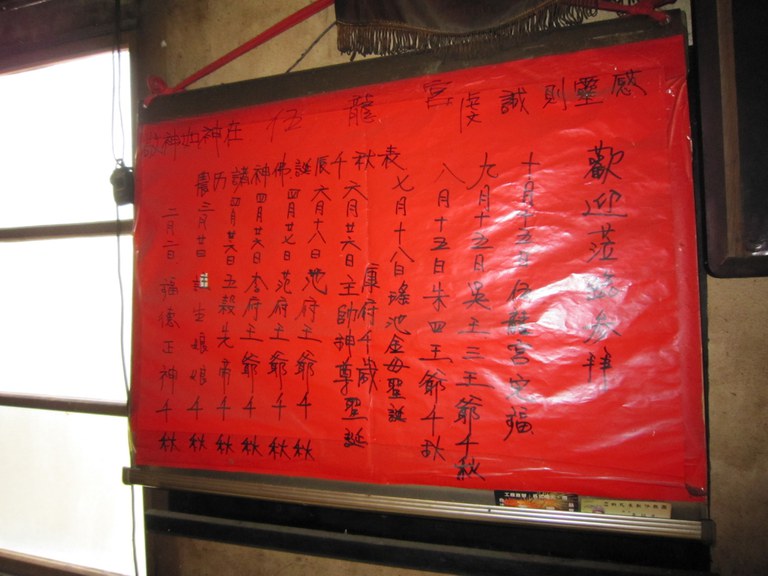 敬神如神在 伍龍宮 虔誠則靈感
農曆諸神佛誕辰千秋表
歡迎蒞茲參拜
十月十五日伍龍宮完福
九月十五日吳三王爺千秋
八月十五日朱四王爺千秋
七月十八日瑤池金母聖誕
康府千歲
六月廿六日主帥神尊聖誕
六月十八日池府王爺千秋
四月廿七日范府王爺千秋
四月廿六日李府王爺千秋
四月廿六日五穀先帝千秋
三月廿日註生娘娘千秋
二月二日福德正神千秋